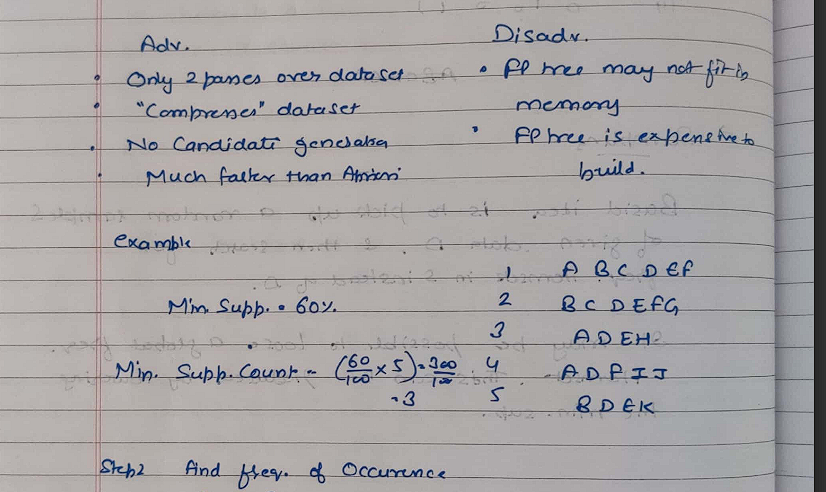 Adv.
Only 2 passes over dataset
"Compresses" dataset
No Candidate generation
Much faster than Apriori
Disadv.
FP tree may not fit in
memory
FP tree is expensive to
build.
Example
Min. Supp. = 60%.
Min. Supp. Count = (60/100 × 5) = 300/100
= 3
1 A B C D E F
2 B C D E F G
3 A D E H
4 A D F I J
5 B D E K
Step 2 Find freq. of Occurence